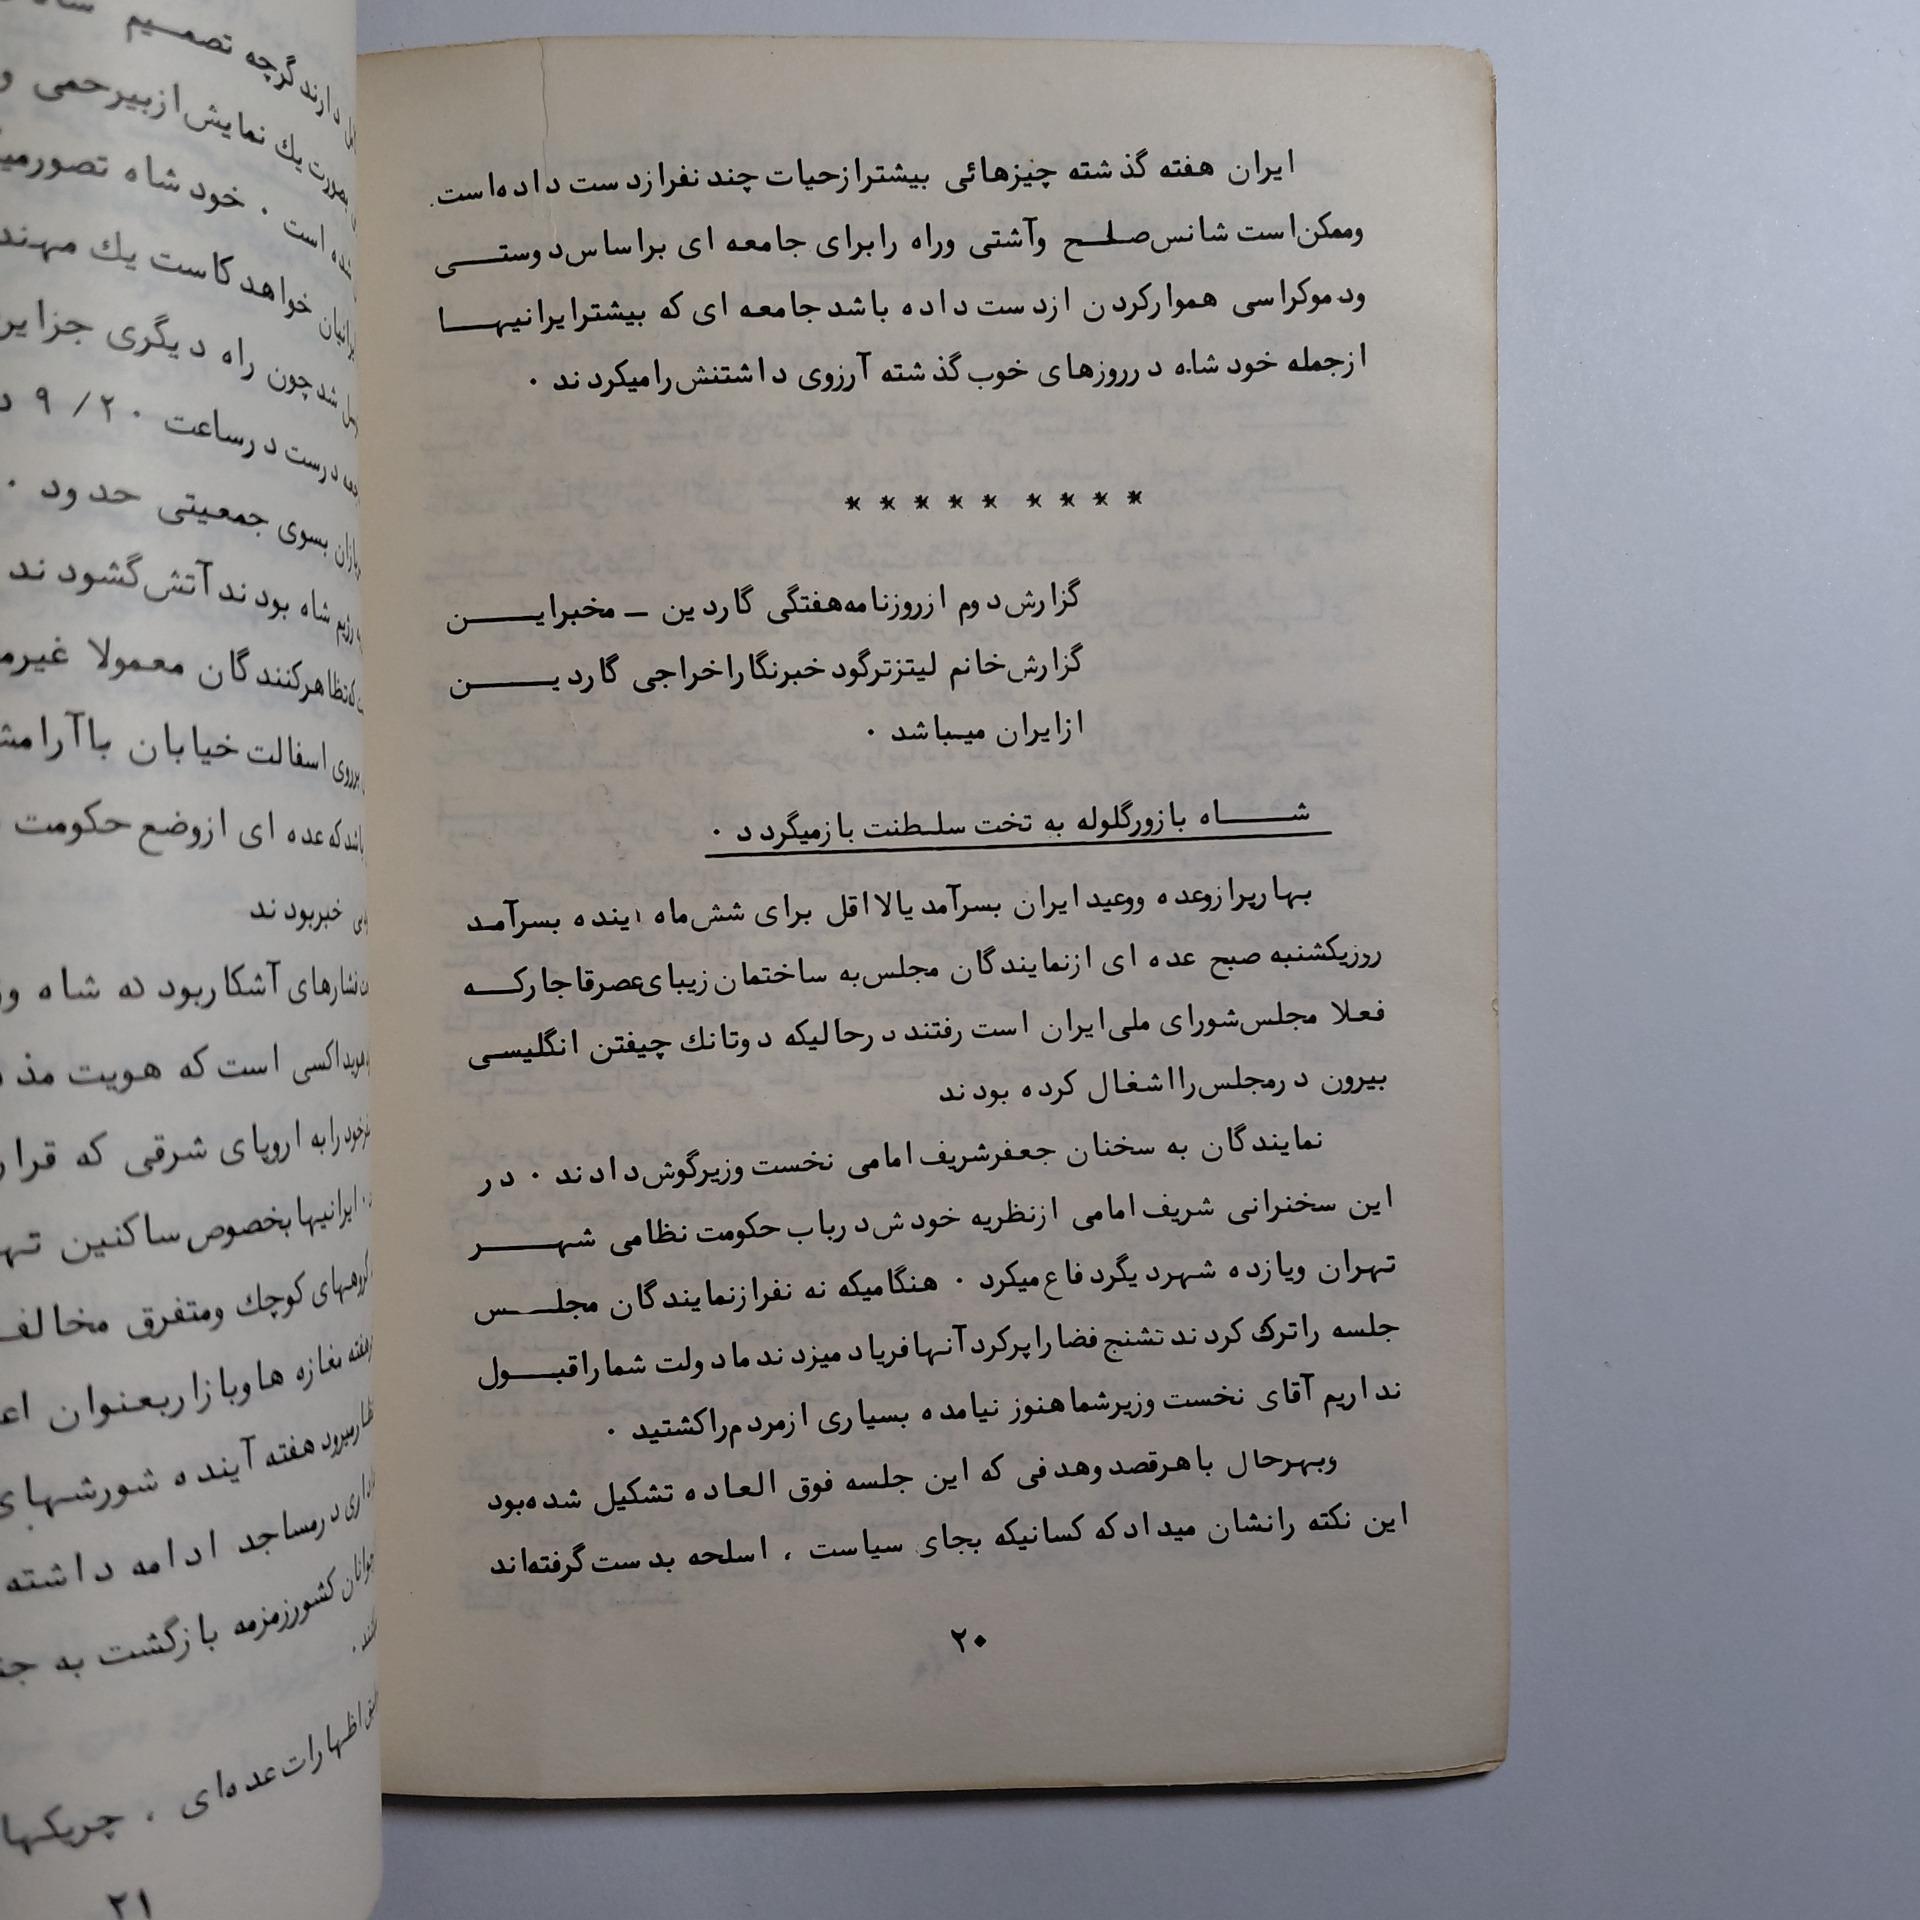 ایران هفته گذشته چیزهائی بیشترازحیات چند نفرازدست داده‌است.
وممکن‌است شانس‌صلح وآشتی وراه رابرای جامعه ای براساس‌دوستی
ودموکراسی هموارکردن ازدست داده باشدجامعه ای که بیشترایرانیها
ازجمله خودشاه درروزهای خوب‌گذشته آرزوی داشتنش‌رامیکردند ۰
* * * * * * * * *
گزارش‌دوم ازروزنامه‌هفتگی گاردین ــ مخبراین
گزارش‌خانم لیتزترگود خبرنگاراخراجی گاردین
ازایران میباشد ۰
شاه بازورگلوله به تخت سلطنت بازمیگردد ۰
بهارپرازوعده ووعیدایران بسرآمدیالااقل برای شش‌ماه اینده بسرآمد
روزیکشنبه صبح عده ای ازنمایندگان مجلس‌به ساختمان زیبای‌عصرقاجارکه
فعلا مجلس‌شورای ملی‌ایران است رفتند درحالیکه دوتانك چیفتن انگلیسی
بیرون درمجلس‌رااشغال کرده بودند
نمایندگان به سخنان جعفرشریف‌امامی نخست وزیرگوش‌دادند ۰ در
این سخنرانی شریف‌امامی ازنظریه خودش‌درباب حکومت نظامی شهر
تهران ویازده شهردیگردفاع‌میکرد ۰ هنگامیکه نه نفرازنمایندگان مجلس
جلسه راترك کردند تشنج فضاراپرکردآنهافریاد میزدندمادولت شماراقبول
نداریم آقای نخست وزیرشماهنوز نیامده بسیاری ازمردم‌راکشتید ۰
وبهرحال باهرقصدوهدفی که این جلسه فوق العاده تشکیل شده‌بود
این نکته رانشان میدادکه کسانیکه بجای سیاست ، اسلحه بدست‌گرفته‌اند
۲۰
دارندگرچه تصمیم
بصورت‌یك نمایش‌ازبیرحمی و
شده است ۰ خودشاه
خواهدکاست یك
شدچون راه دیگری
درست درساعت ۹/۲۰
بسوی جمعیتی حدود
شاه بودندآتش‌گشودند
تظاهرکنندگان معمولا
برروی اسفالت خیابان
که‌عده ای ازوضع حکومت
خبربودند
آشکاربود
است که هویت
خودرابه اروپای شرقی که
ایرانیهابخصوص‌ساکنین
گروههای کوچك ومتفرق
مغازه هاوبازاربعنوان
هفته آینده
درمساجد ادامه داشته
کشورزمزمه بازگشت به
اظهارات‌عده‌ای ، چریکها
۲۱